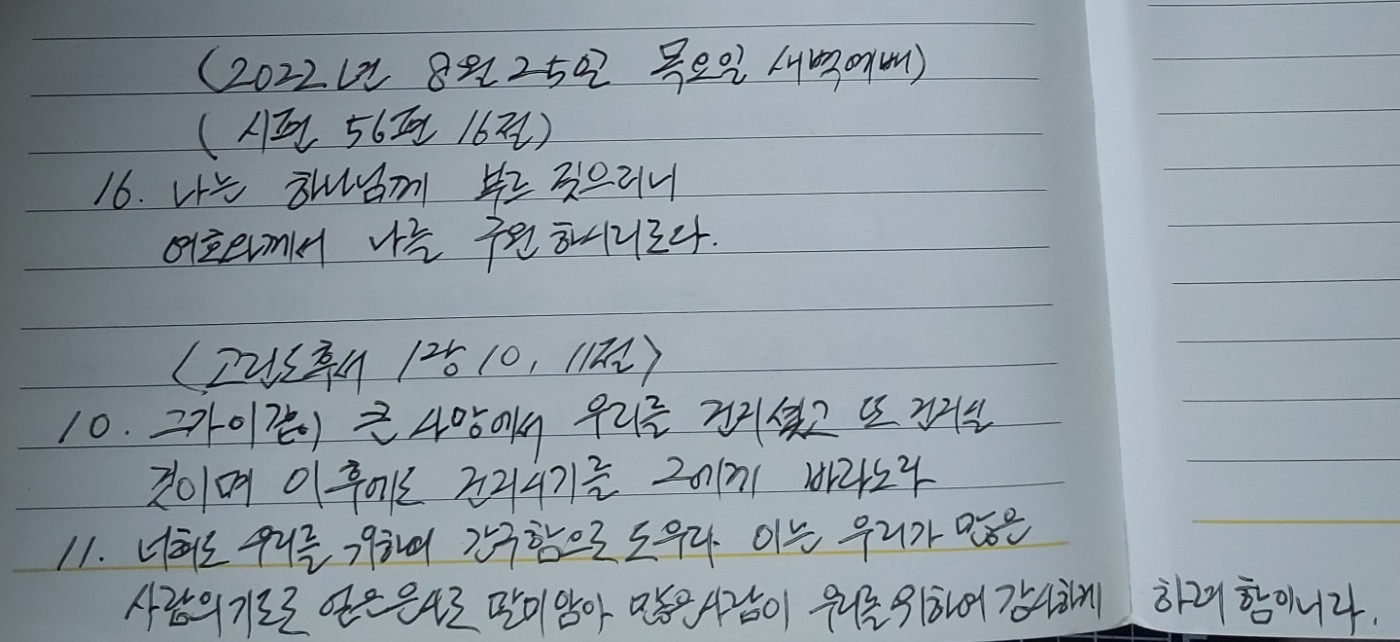 (2022년 8월 25일 목요일 새벽예배)
(시편 56편 16절)
16. 나는 하나님께 부르 짖으리니
여호와께서 나를 구원 하시리로다.
(고린도후서 1장 10, 11절)
10. 그가 이같이 큰 사망에서 우리를 건지셨고 또 건지실
것이며 이 후에도 건지시기를 그에게 바라노라
11. 너희도 우리를 위하여 간구함으로 도우라 이는 우리가 많은
사람의 기도로 얻은 은사로 말미암아 많은 사람이 우리를 위하여 감사하게 하려 함이니라.